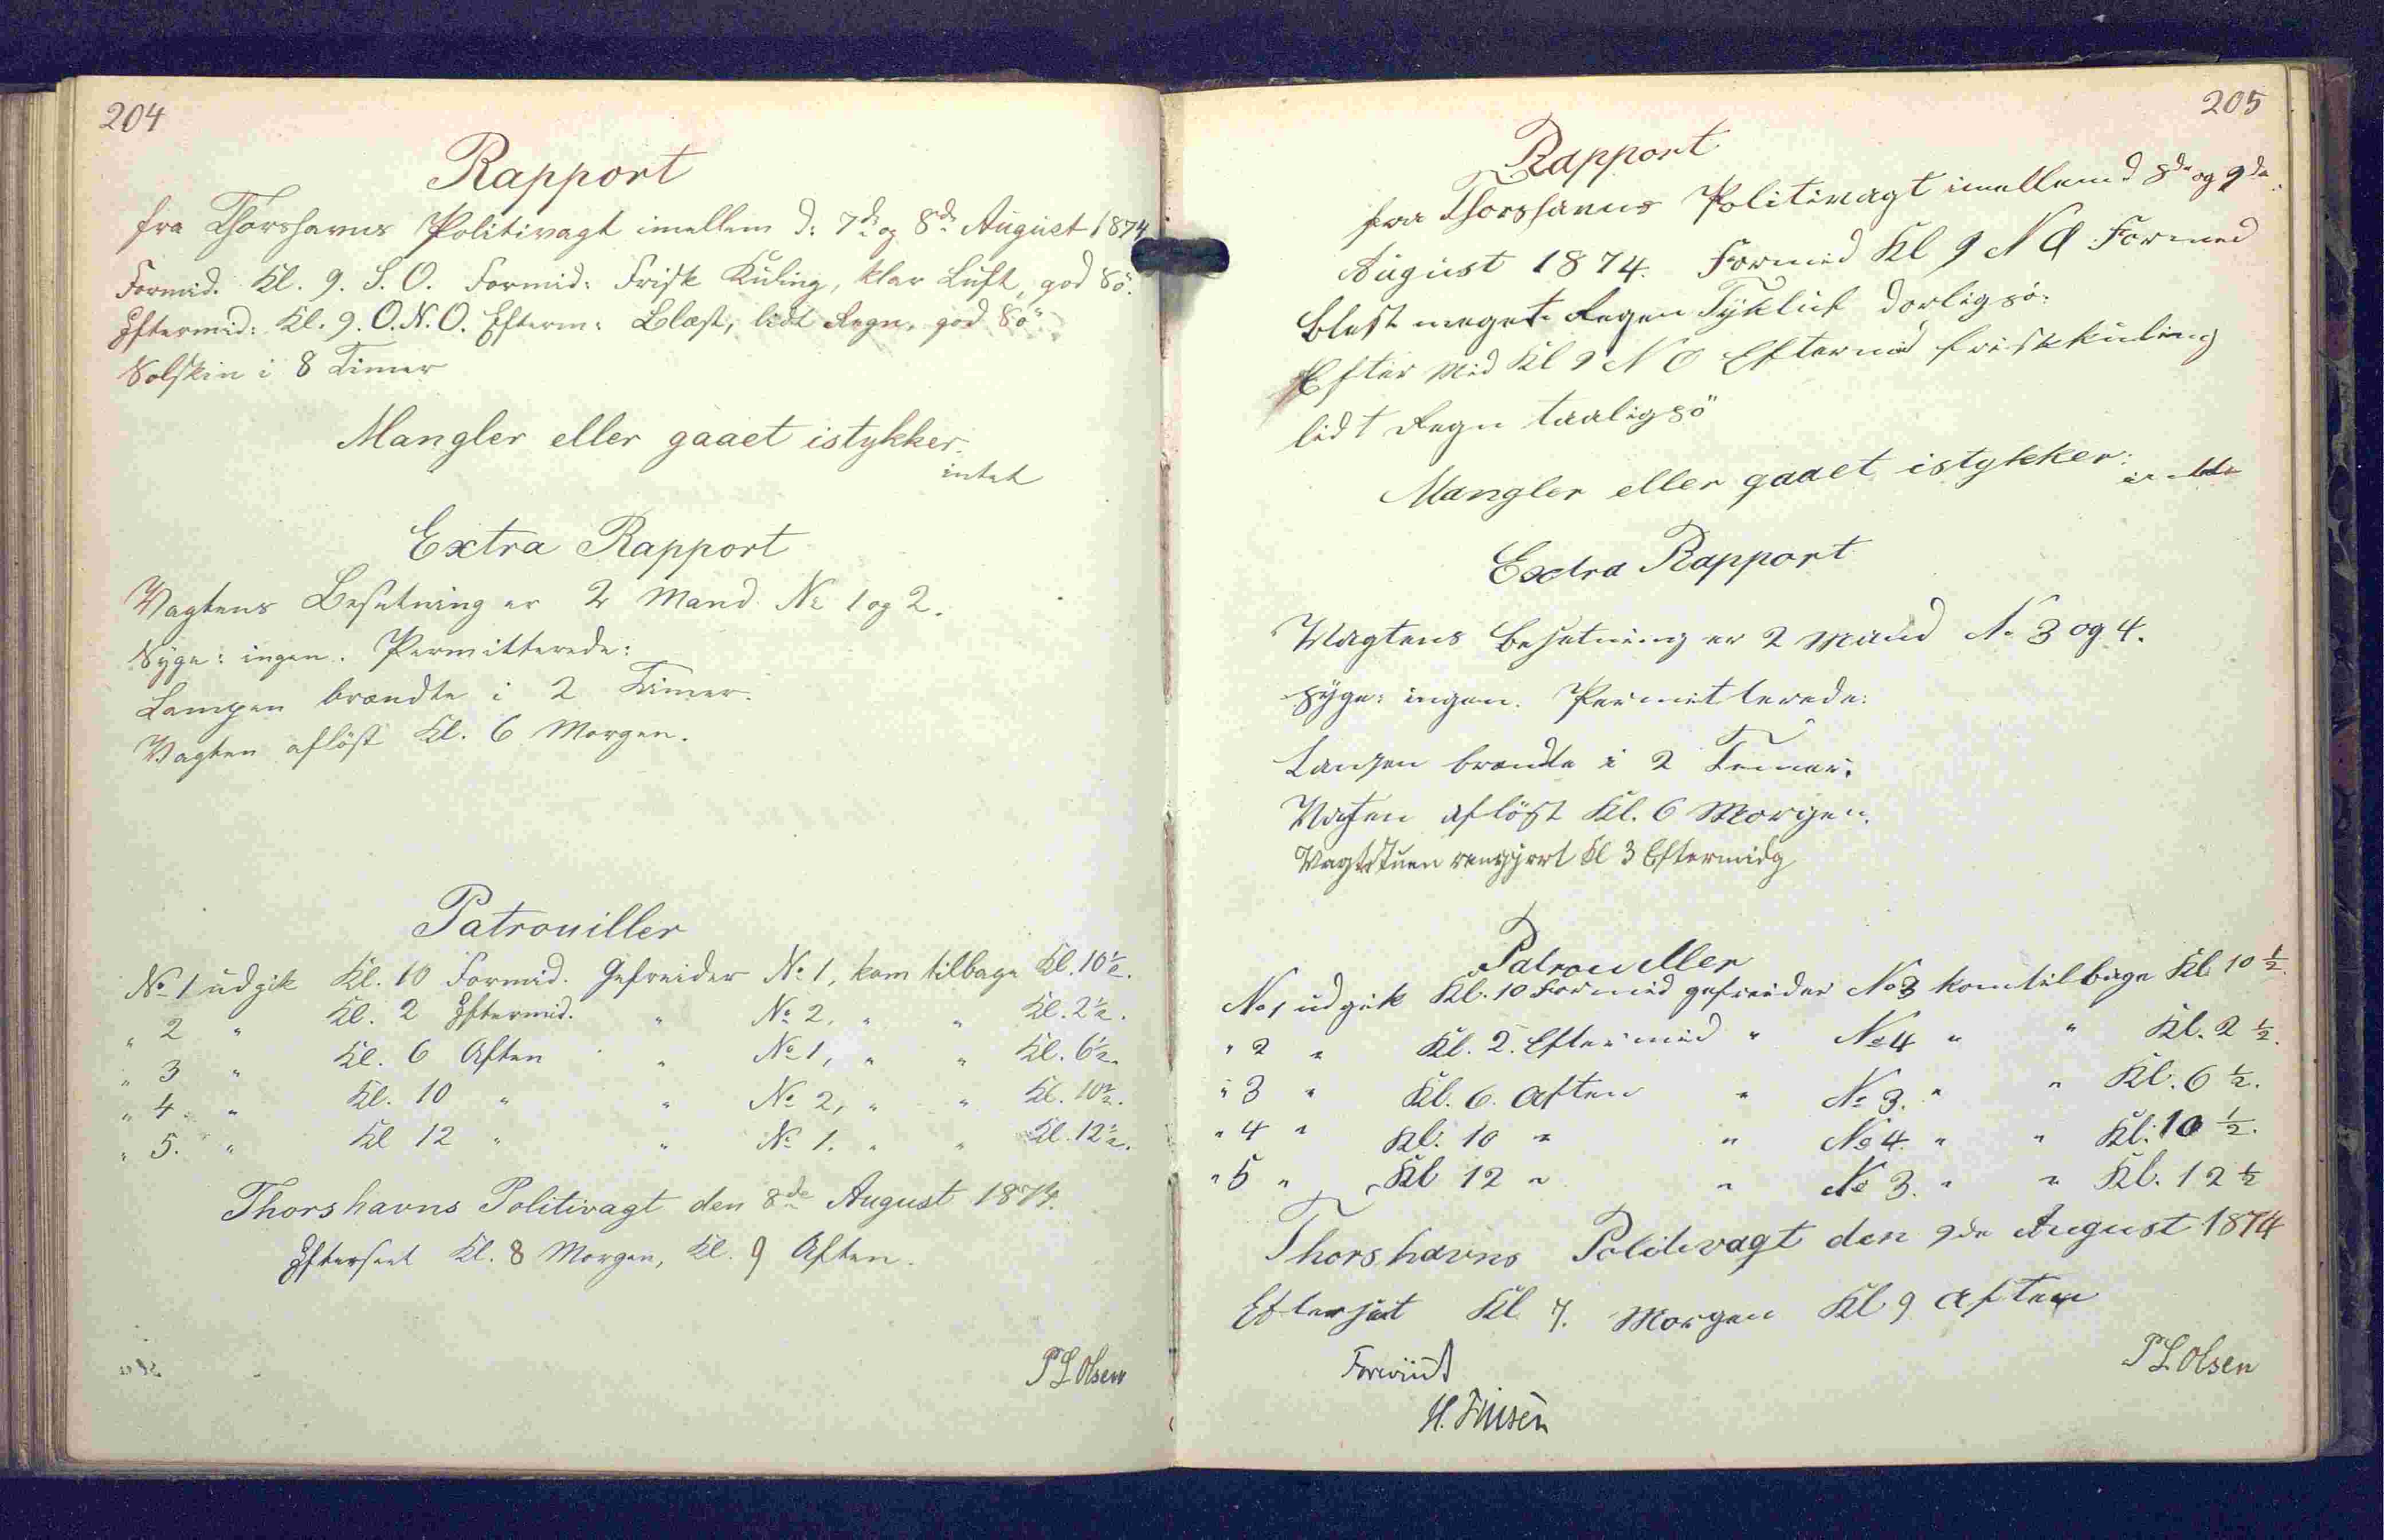 204
Rapport
fra Thorshavns Politivagt imellem d: 7de og 8de August 1874
Formid. Kl. 9. S.O. Formid: Frisk Kuling, klar Luft, god Sö.
Eftermid: Kl. 9. O.N.O. Efterm: Blæst, lidt Regn, god Sö
Solskin i 8 Timer
Mangler eller gaaet istykker.
intet
Extra Rapport
Vagtens Besetning er 2 Mand No 1 og 2.
Syge: ingen. Permitterede:
Lampen brændte i 2 Timer.
Vagten aflöst Kl. 6 Morgen.
Patrouiller
No 1 udgik Kl. 10 Formid. Gefreider No 1, kom tilbage Kl. 10½.
" 2 " Kl. 2 Eftermid. " No 2, " " Kl. 2½.
" 3 " Kl. 6 Aften " No 1, " " Kl. 6½.
" 4. " Kl. 10 " " No 2, " " Kl. 10½.
" 5. " Kl 12 " " No 1. " " Kl. 12½.
Thorshavns Politivagt den 8de August 1874.
Efterseet Kl. 8 Morgen, Kl. 9 Aften.
P L Olsen
205
Rapport
fra Thorshavns Politivagt imellem d 8de og 9de
August 1874. Formid Kl 9 N O Formed
blest meget Regen Tykluft dorligsö:
Efter Mid Kl 9 N O Eftermid friskkuling
lidt Regn taaligsö
Mangler eller gaaet istykker:
Exdra Rapport
Vagtens besetning er 2 Mand No 3 og 4.
syge: ingen. Permitterede:
Lampen brændte i 2 Timer.
Vagten aflöst Kl. 6 Morgen.
Vagtstuen rengjort Kl 3 Eftermidg
Patrouller
No 1 udgik Kl. 10 Formid gefreider No 3 kom tilbage Kl. 10 ½.
" 2 " Kl. 2. Eftermid " No 4 " " Kl. 2 ½.
" 3 " Kl. 6. Aften " No 3. " " Kl. 6 ½.
" 4 " Kl. 10 " " No 4. " " Kl. 10 ½.
" 5 " Kl 12 " " No 3. " " Kl. 12 ½
Thorshavns Politivagt den 9de August 1874
Efterset Kl 7. Morgen Kl 9 Aften
P L Olsen
Forevist
H. Finsen